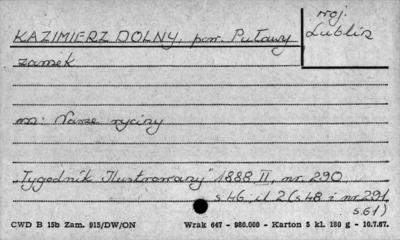 woj.
Lublin
KAZIMIERZ DOLNY, pow. Puławy
zamek
m: Nasze ryciny
„Tygodnik Ilustrowany" 1888 II, nr. 290
s 46, il 2 (s 48 i nr 291
s. 61)
CWD B 15b Zam. 915/DW/ON Wrak 647 - 986.000 - Karton 5 kl. 180 g - 10.7.67.